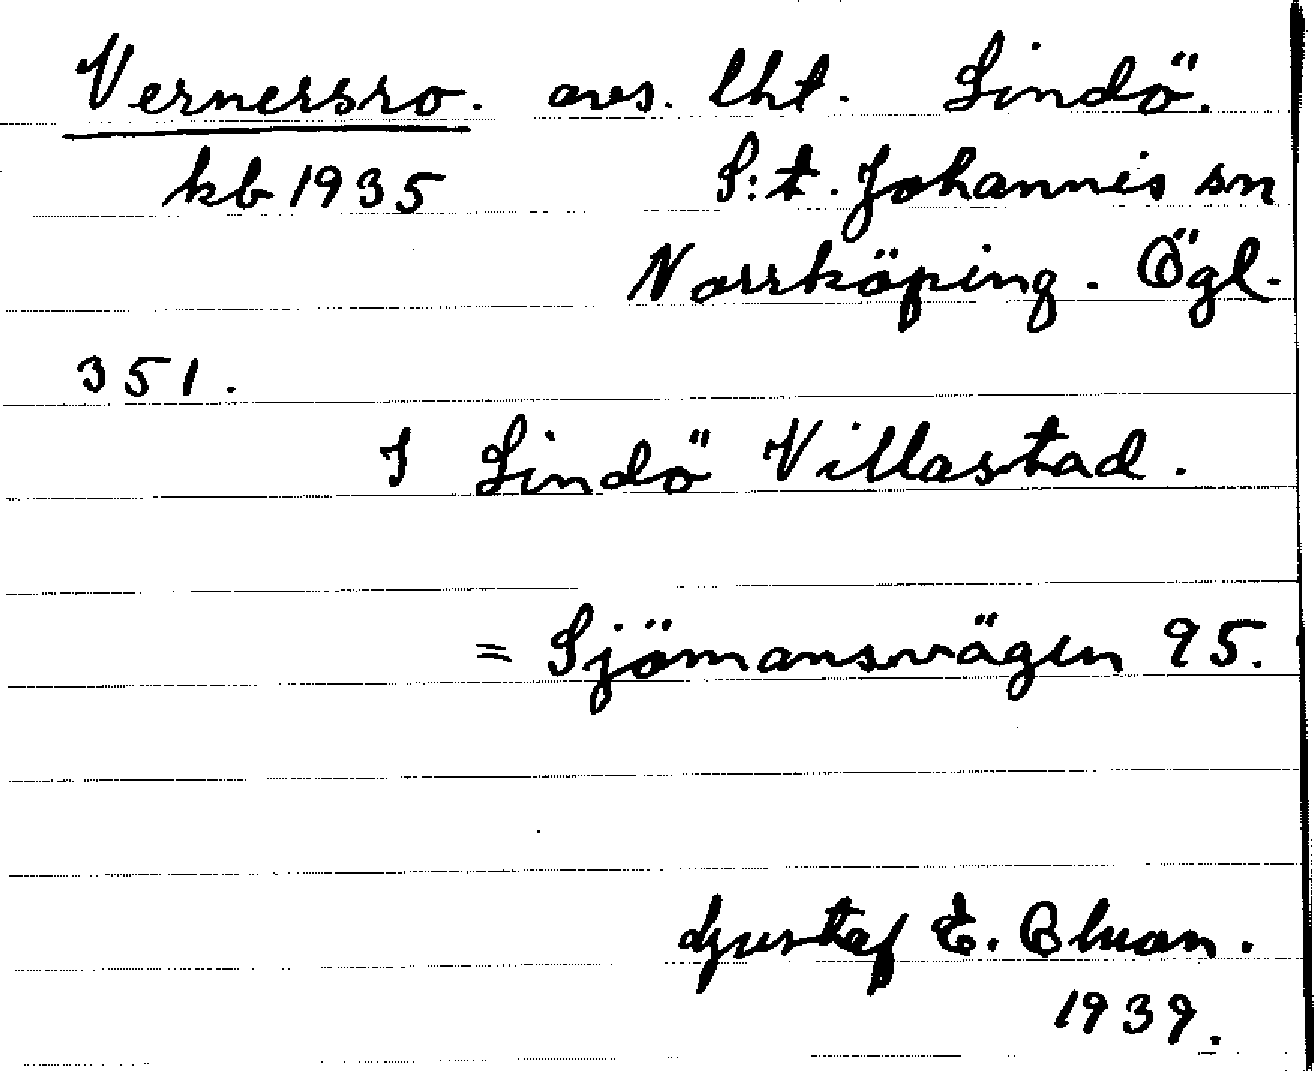 Vernersro. avs. lht. Lindö.
kb 1935 S:t. Johannis sn
Norrköping. Ögl.
351.
I Lindö Villastad.
= Sjömansvägen 95.
Gustaf E. Bluan.
1939.